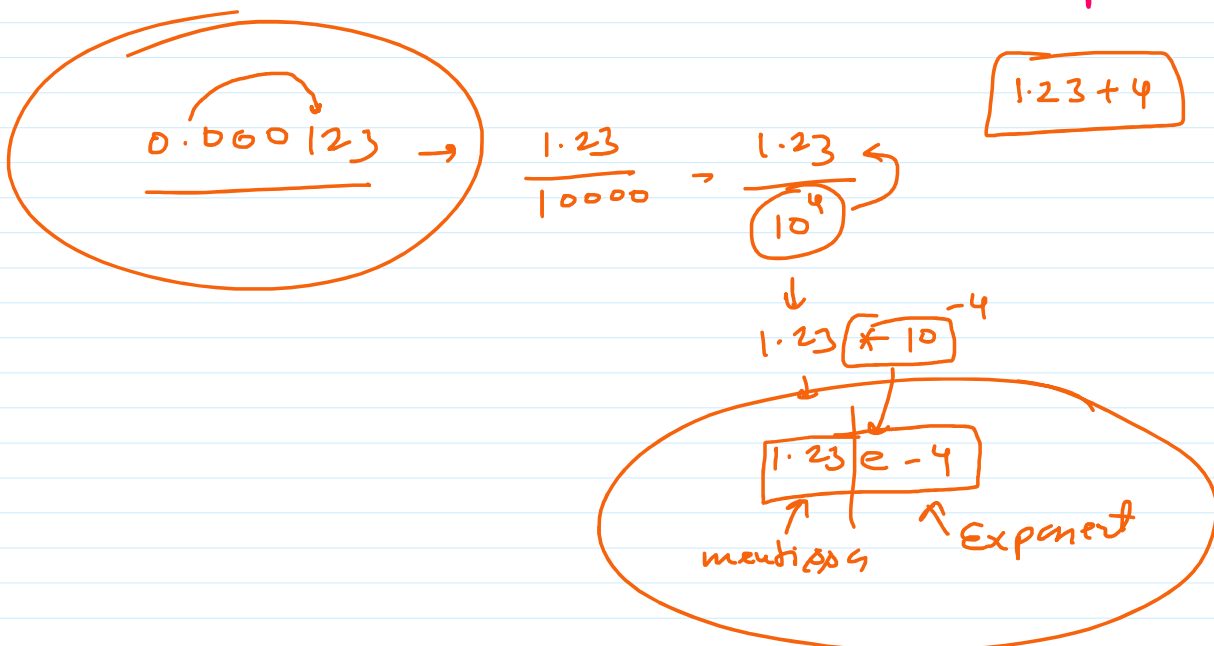 1.23 + 4
0.000123 → 1.23 / 10000 → 1.23 / 10^4
↓
1.23 * 10^-4
↓
1.23 e - 4
mentissa Exponent